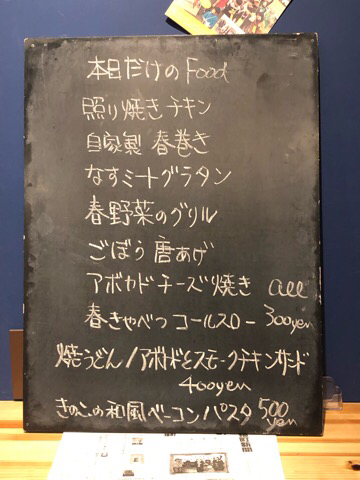 本日だけのFood
照り焼きチキン
自家製 春巻き
なすミートグラタン
春野菜のグリル
ごぼう唐あげ
アボカドチーズ焼き all
春きゃべつコールスロー 300yen
焼うどん/アボカドとスモークチキンサンド
400yen
きのこの和風ベーコンパスタ 500
yen